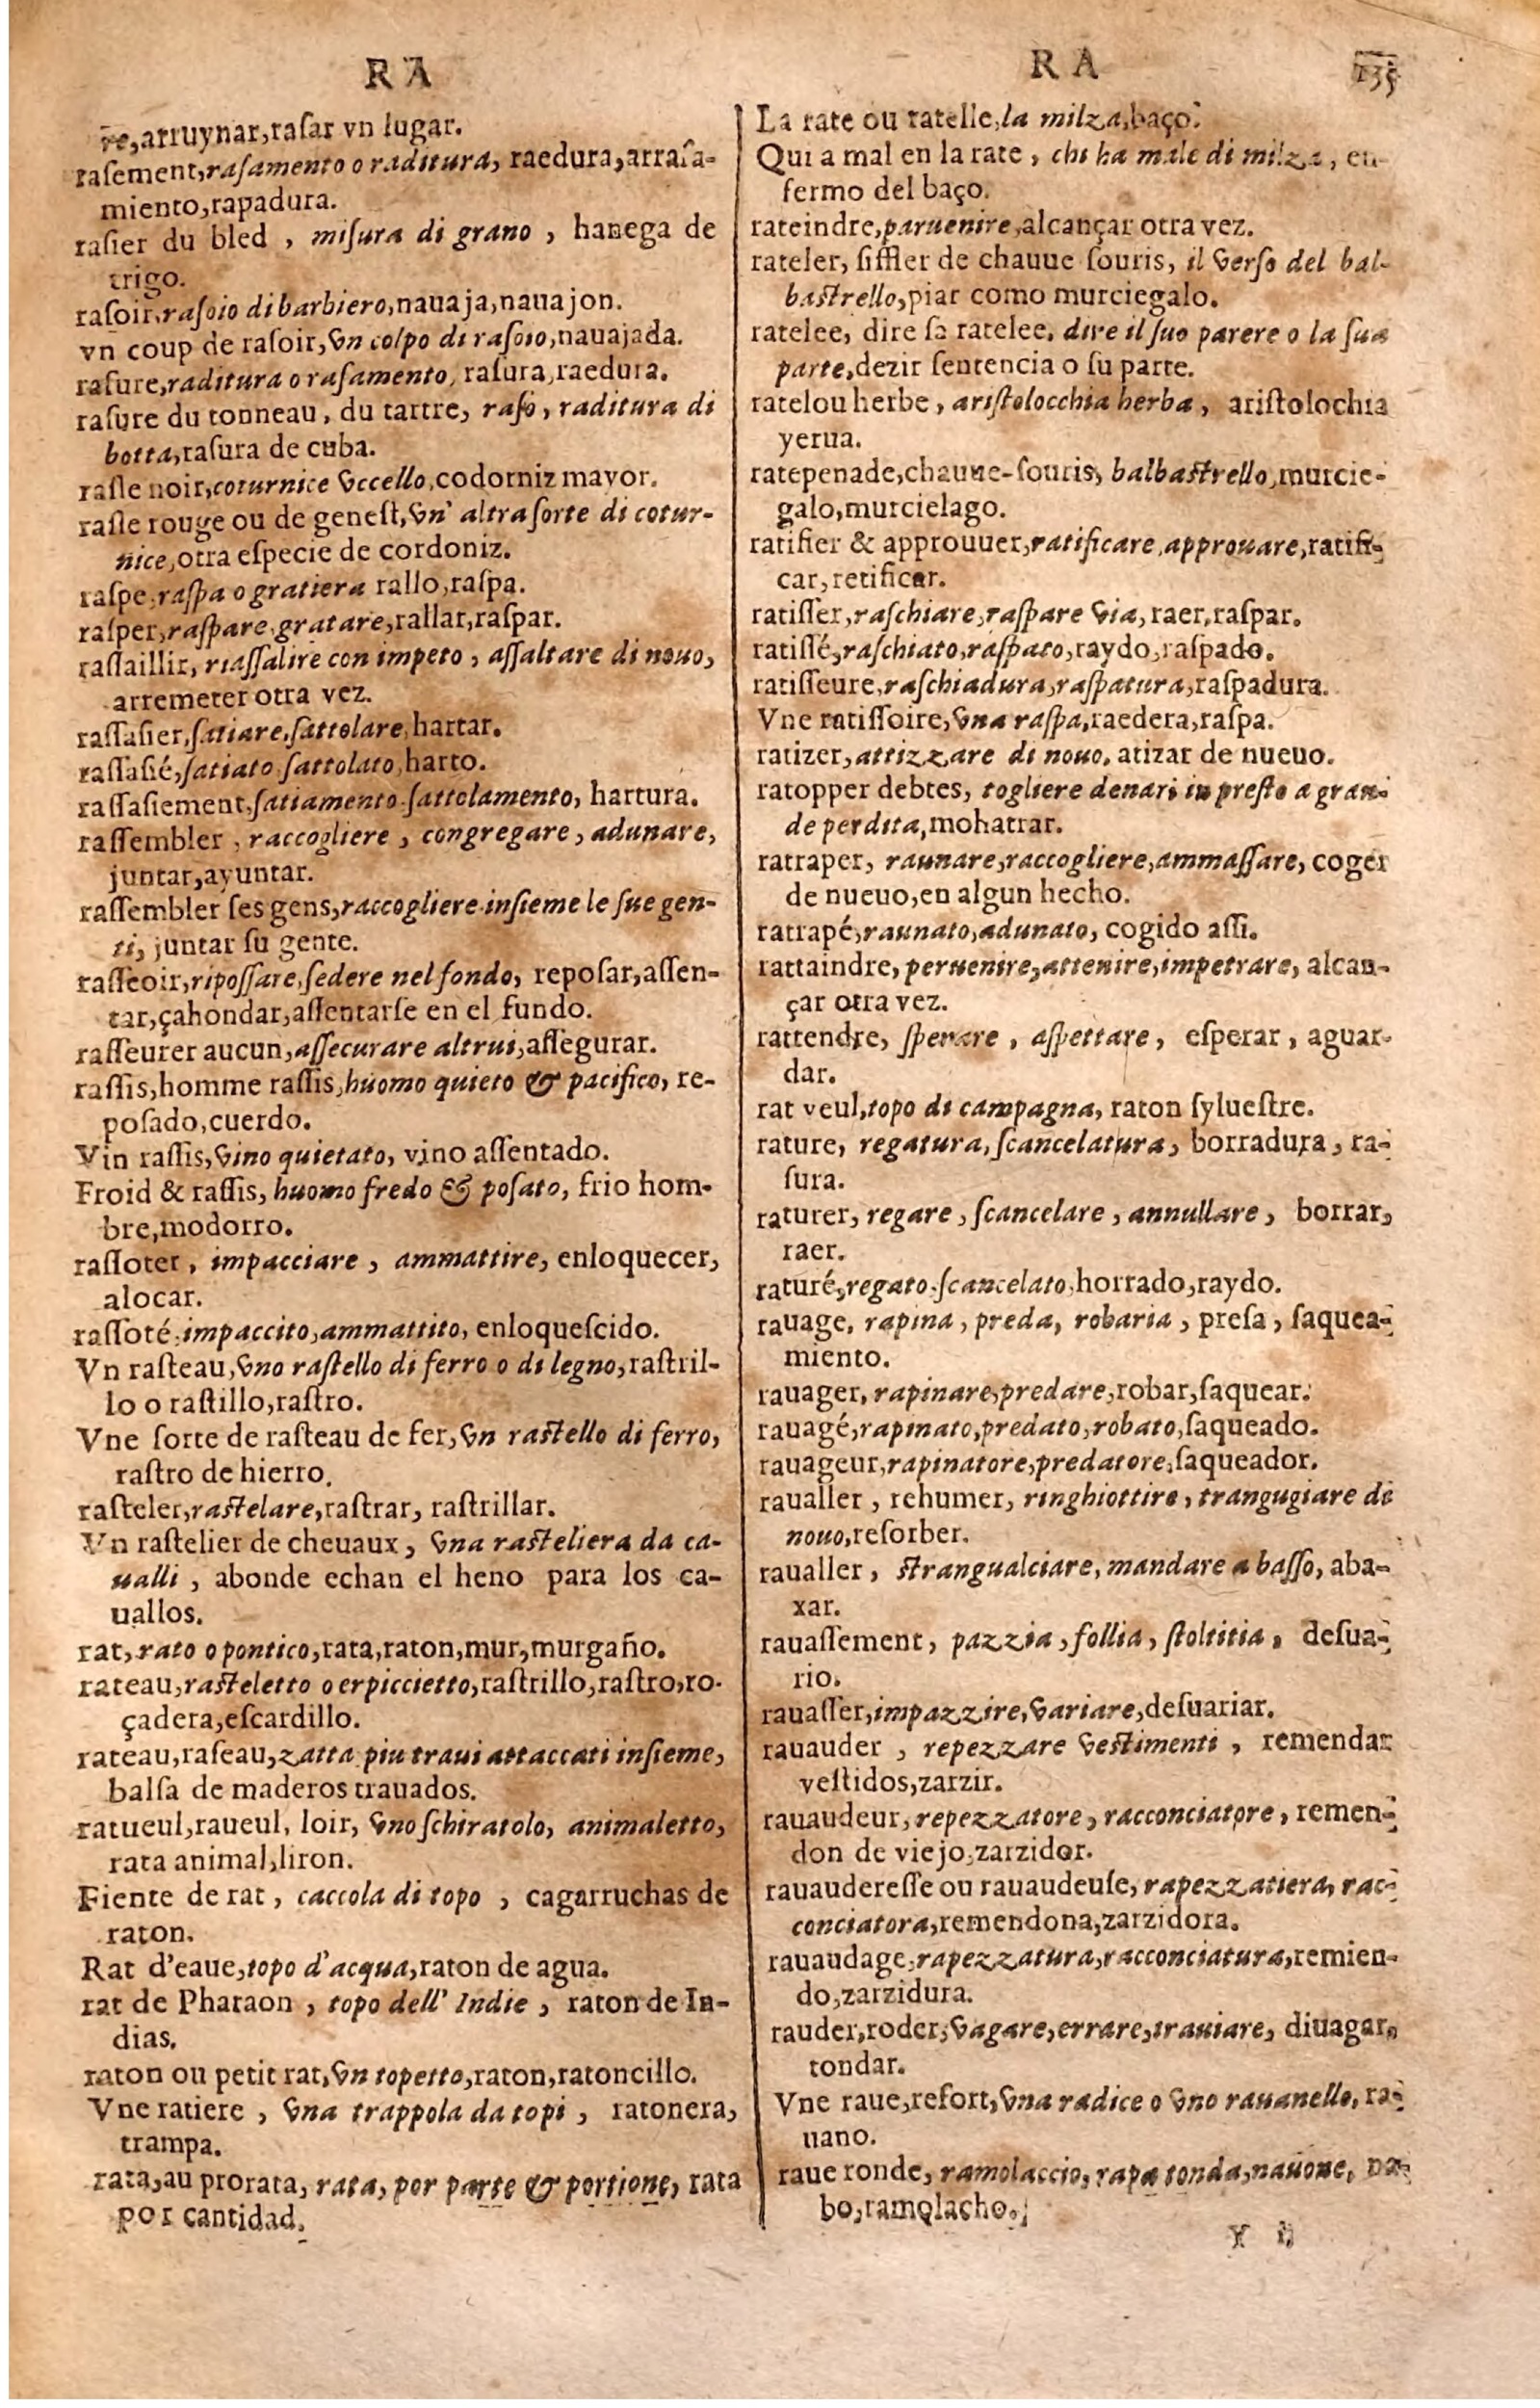 RA
re,arruynar,raſar vn lugar.
raſement,raſamento o raditura, raedura,arraſa-
miento,rapadura.
raſier du bled , miſura di grano , hanega de
trigo.
raſoir,raſoio di barbiero,nauaja,nauajon.
vn coup de raſoir,vn colpo di raſoio,nauajada.
raſure,raditura o raſamento, raſura,raedura.
raſure du tonneau, du tartre, raſo, raditura di
botta,raſura de cuba.
raſle noir,coturnice vccello,codorniz mayor.
raſle rouge ou de geneſt,vn' altra ſorte di cotur-
nice,otra eſpecie de cordoniz.
raſpe,raſpa o gratiera rallo,raſpa.
raſper,raſpare,gratare,rallar,raſpar.
raſſaillir, riaſſalire con impeto , aſſaltare di nouo,
arremeter otra vez.
raſſaſier,ſatiare,ſattolare,hartar.
raſſaſié,ſatiato ſattolato,harto.
raſſaſiement,ſatiamento ſattolamento, hartura.
raſſembler , raccogliere , congregare , adunare,
juntar,ayuntar.
raſſembler ſes gens,raccogliere inſieme le ſue gen-
ti, juntar ſu gente.
raſſeoir,ripoſſare,ſedere nel fondo, repoſar,aſſen-
tar,çahondar,aſſentarſe en el fundo.
raſſeurer aucun,aſſecurare altrui,aſſegurar.
raſſis,homme raſſis,huomo quieto & pacifico, re-
poſado,cuerdo.
Vin raſſis,vino quietato, vino aſſentado.
Froid & raſſis, huomo fredo & poſato, frio hom-
bre,modorro.
raſſoter , impacciare , ammattire, enloquecer,
alocar.
raſſoté,impaccito,ammattito, enloqueſcido.
Vn raſteau,vno raſtello di ferro o di legno,raſtril-
lo o raſtillo,raſtro.
Vne ſorte de raſteau de fer,vn raſtello di ferro,
raſtro de hierro.
raſteler,raſtelare,raſtrar, raſtrillar.
Vn raſtelier de cheuaux, vna raſteliera da ca-
ualli , abonde echan el heno para los ca-
uallos.
rat, rato o pontico,rata,raton,mur,murgaño.
rateau,raſteletto o erpiccietto,raſtrillo,raſtro,ro-
çadera,eſcardillo.
rateau,raſeau,zatta piu traui attaccati inſieme,
balſa de maderos trauados.
ratueul,raueul, loir, vno ſchiratolo, animaletto,
rata animal,liron.
Fiente de rat , caccola di topo , cagarruchas de
raton.
Rat d'eaue,topo d'acqua,raton de agua.
rat de Pharaon , topo dell' Indie , raton de In-
dias.
raton ou petit rat,vn topetto,raton,ratoncillo.
Vne ratiere , vna trappola da topi , ratonera,
trampa.
rata,au prorata, rata, por parte & portione, rata
por cantidad.
RA 235
La rate ou ratelle,la milza,baço.
Qui a mal en la rate , chi ha male di milza , en-
fermo del baço.
rateindre,paruenire,alcançar otra vez.
rateler, ſiffler de chauue ſouris, il verſo del bal-
baſtrello,piar como murciegalo.
ratelee, dire ſa ratelee, dire il ſuo parere o la ſua
parte,dezir ſentencia o ſu parte.
ratelou herbe , ariſtolocchia herba , ariſtolochia
yerua.
ratepenade,chauue-ſouris, balbaſtrello,murcie-
galo,murcielago.
ratifier & approuuer,ratificare,approuare,ratifi-
car,retificar.
ratiſſer,raſchiare,raſpare via, raer,raſpar.
ratiſſé,raſchiato,raſpato,raydo,raſpado.
ratiſſeure,raſchiadura,raſpatura,raſpadura.
Vne ratiſſoire,vna raſpa,raedera,raſpa.
ratizer,attizzare di nouo, atizar de nueuo.
ratopper debtes, togliere denari in preſto a gran-
de perdita,mohatrar.
ratraper, raunare,raccogliere,ammaſſare, coger
de nueuo,en algun hecho.
ratrapé,raunato,adunato, cogido aſſi.
rattaindre, peruenire,attenire,impetrare, alcan-
çar otra vez.
rattendre, ſperare , aſpettare , eſperar , aguar-
dar.
rat veul,topo di campagna, raton ſylueſtre.
rature, regatura,ſcancelatura, borradura, ra-
ſura.
raturer, regare, ſcancelare , annullare , borrar,
raer.
raturé,regato.ſcancelato,horrado,raydo.
rauage, rapina, preda, robaria , preſa , ſaquea-
miento.
rauager, rapinare,predare,robar,ſaquear.
rauagé,rapinato,predato,robato,ſaqueado.
rauageur,rapinatore,predatore,ſaqueador.
raualler , rehumer, ringhiottire, trangugiare de
nouo,reſorber.
raualler , ſtrangualciare, mandare a baſſo, aba-
xar.
rauaſſement, pazzia, follia, ſtoltitia, deſua-
rio.
rauaſſer,impazzire,variare,deſuariar.
rauauder , repezzare veſtimenti , remendar
veſtidos,zarzir.
rauaudeur, repezzatore, racconciatore, remen-
don de viejo,zarzidor.
rauauderesſe ou rauaudeuſe, rapezzatiera, rac-
conciatora,remendona,zarzidora.
rauaudage,rapezzatura,racconciatura,remien-
do,zarzidura.
rauder,roder,vagare,errare,trauiare, diuagar,
tondar.
Vne raue,refort,vna radice o vno rauanello, ra-
uano.
raue ronde, ramolaccio, rapa tonda,nauone, na-
bo,ramolacho.
Y ij